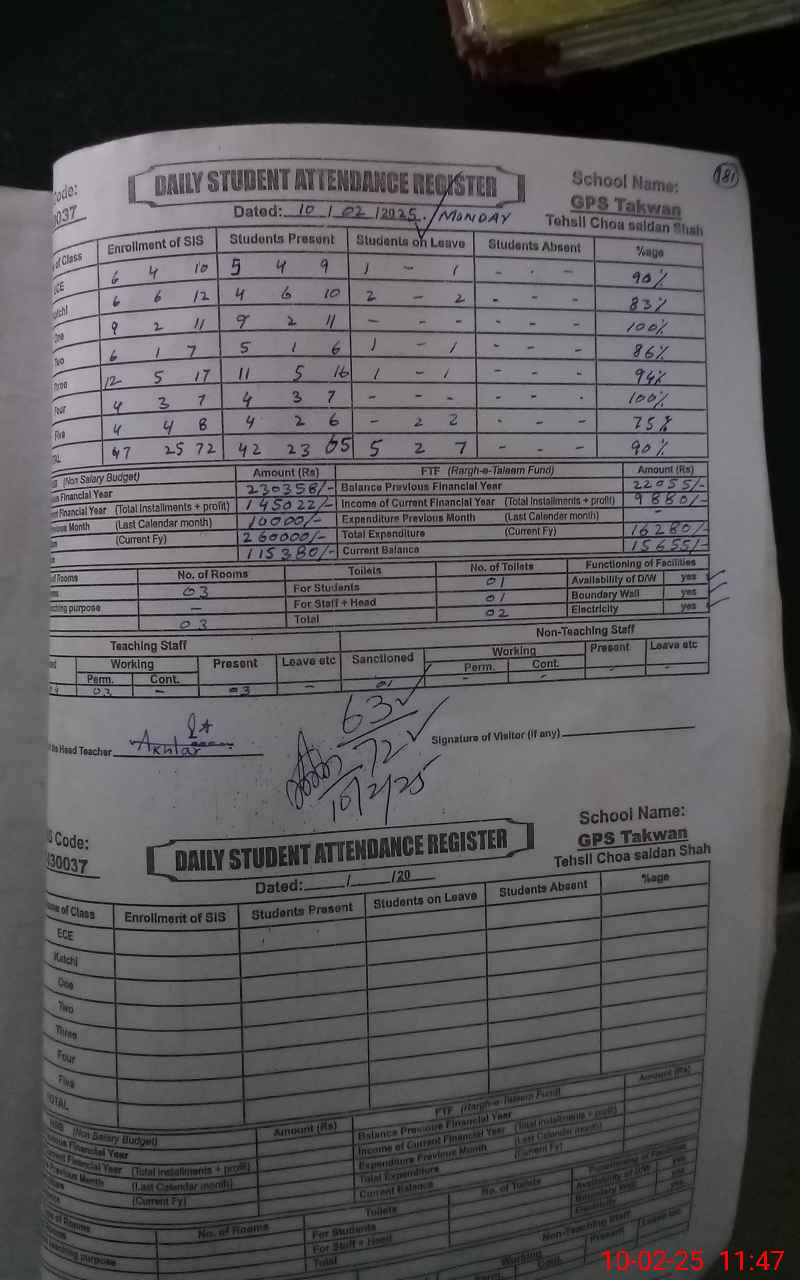 181
ode:
0037
DAILY STUDENT ATTENDANCE REGISTER
School Name:
GPS Takwan
Tehsil Choa saidan Shah
Dated: 10 / 02 /2025. / MONDAY
of Class Enrollment of SIS Students Present Students on Leave Students Absent %age
ECE 6 4 10 5 4 9 1 - 1 - - - 90%
atchi 6 6 12 4 6 10 2 - 2 - - - 83%
One 9 2 11 9 2 11 - - - - - - 100%
Two 6 1 7 5 1 6 1 - 1 - - - 86%
Three 12 5 17 11 5 16 1 - 1 - - - 94%
Four 4 3 7 4 3 7 - - - - - - 100%
Five 4 4 8 4 2 6 - 2 2 - - - 75%
TAL 47 25 72 42 23 65 5 2 7 - - - 90%
(Non Salary Budget) Amount (Rs) FTF (Rargh-e-Taleem Fund) Amount (Rs)
Financial Year 230358/- Balance Previous Financial Year 22055/-
Financial Year (Total Installments + profit) 145022/- Income of Current Financial Year (Total Installments + profit) 9880/-
Month (Last Calendar month) 10000/- Expenditure Previous Month (Last Calendar month) -
(Current Fy) 260000/- Total Expenditure (Current Fy) 16280/-
115380/- Current Balance 15655/-
of Rooms No. of Rooms Toilets No. of Toilets Functioning of Facilities
03 For Students 01 Availability of D/W yes
ching purpose - For Staff + Head 01 Boundary Wall yes
03 Total 02 Electricity yes
Teaching Staff Non-Teaching Staff
Working Present Leave etc Sanctioned Working Present Leave etc
Perm. Cont. Perm. Cont.
03 - 03 - 01 - - - -
the Head Teacher Akhtar
63
72
10/2/25
Signature of Visitor (if any)
S Code:
30037
DAILY STUDENT ATTENDANCE REGISTER
School Name:
GPS Takwan
Tehsil Choa saidan Shah
Dated: / /20
me of Class Enrollment of SIS Students Present Students on Leave Students Absent %age
ECE
Katchi
One
Two
Three
Four
Five
TOTAL
NSB (Non Salary Budget) Amount (Rs) FTF (Rargh-e-Taleem Fund) Amount (Rs)
Financial Year Balance Previous Financial Year
Financial Year (Total Installments + profit) Income of Current Financial Year (Total Installments + profit)
Previous Month (Last Calendar month) Expenditure Previous Month (Last Calendar month)
(Current Fy) Total Expenditure (Current Fy)
Current Balance
of Rooms No. of Rooms Toilets No. of Toilets Functioning of Facilities
For Students Availability of D/W yes
teaching purpose For Staff + Head Boundary Wall yes
Total Electricity yes
Non-Teaching Staff
Working Present Leave etc
Perm. Cont.
10-02-25 11:47